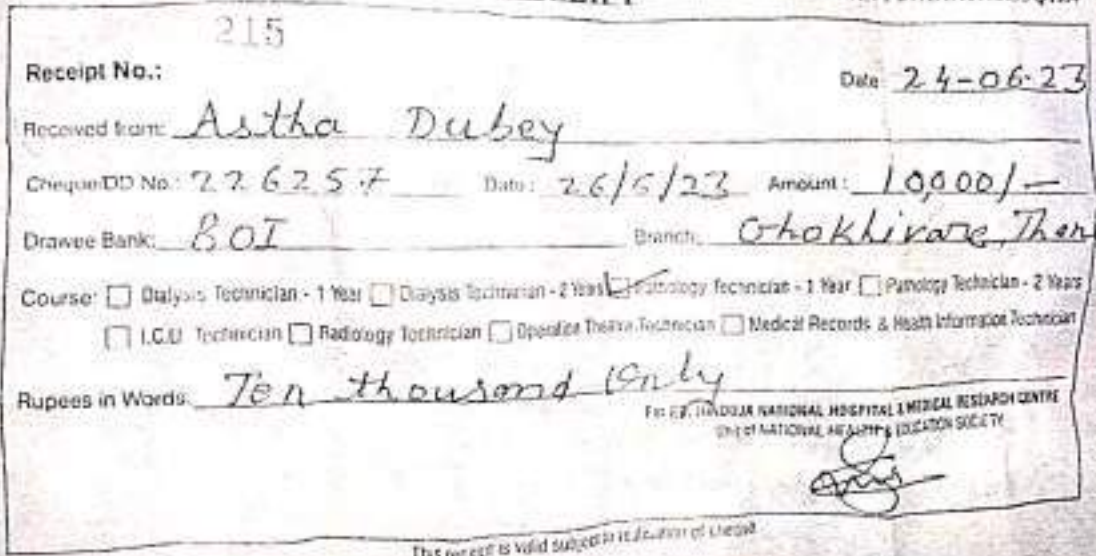 215
Receipt No.:
Date 24-06-23
Received from: Astha Dubey
Cheque/DD No.: 226257 Date: 26/5/23 Amount: 10,000/-
Drawee Bank: BOI Branch: Ghokhivare, Than
Course: Dialysis Technician - 1 Year Dialysis Technician - 2 Years Pathology Technician - 1 Year Pathology Technician - 2 Years
I.C.U. Technician Radiology Technician Operation Theatre Technician Medical Records & Health Information Technician
Rupees in Words Ten thousand Only
For P.D. HINDUJA NATIONAL HOSPITAL & MEDICAL RESEARCH CENTRE
Unit of NATIONAL HEALTH & EDUCATION SOCIETY
This receipt is valid subject to realisation of cheque